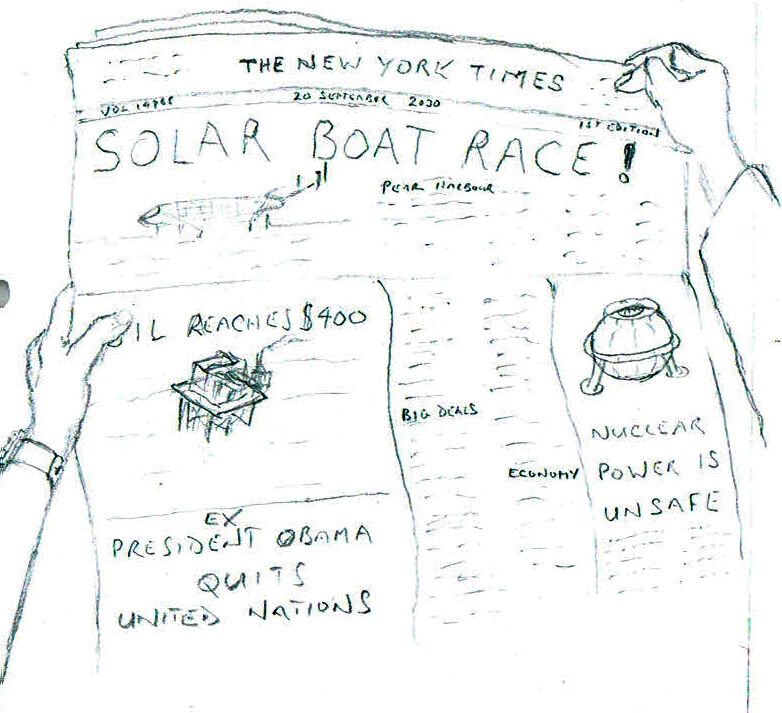 THE NEW YORK TIMES
VOL 14965
20 SEPTEMBER 2030
1ST EDITION
SOLAR BOAT RACE!
PEAR HARBOUR
OIL REACHES $400
BIG DEALS
ECONOMY
NUCLEAR
POWER IS
UNSAFE
EX
PRESIDENT OBAMA
QUITS
UNITED NATIONS